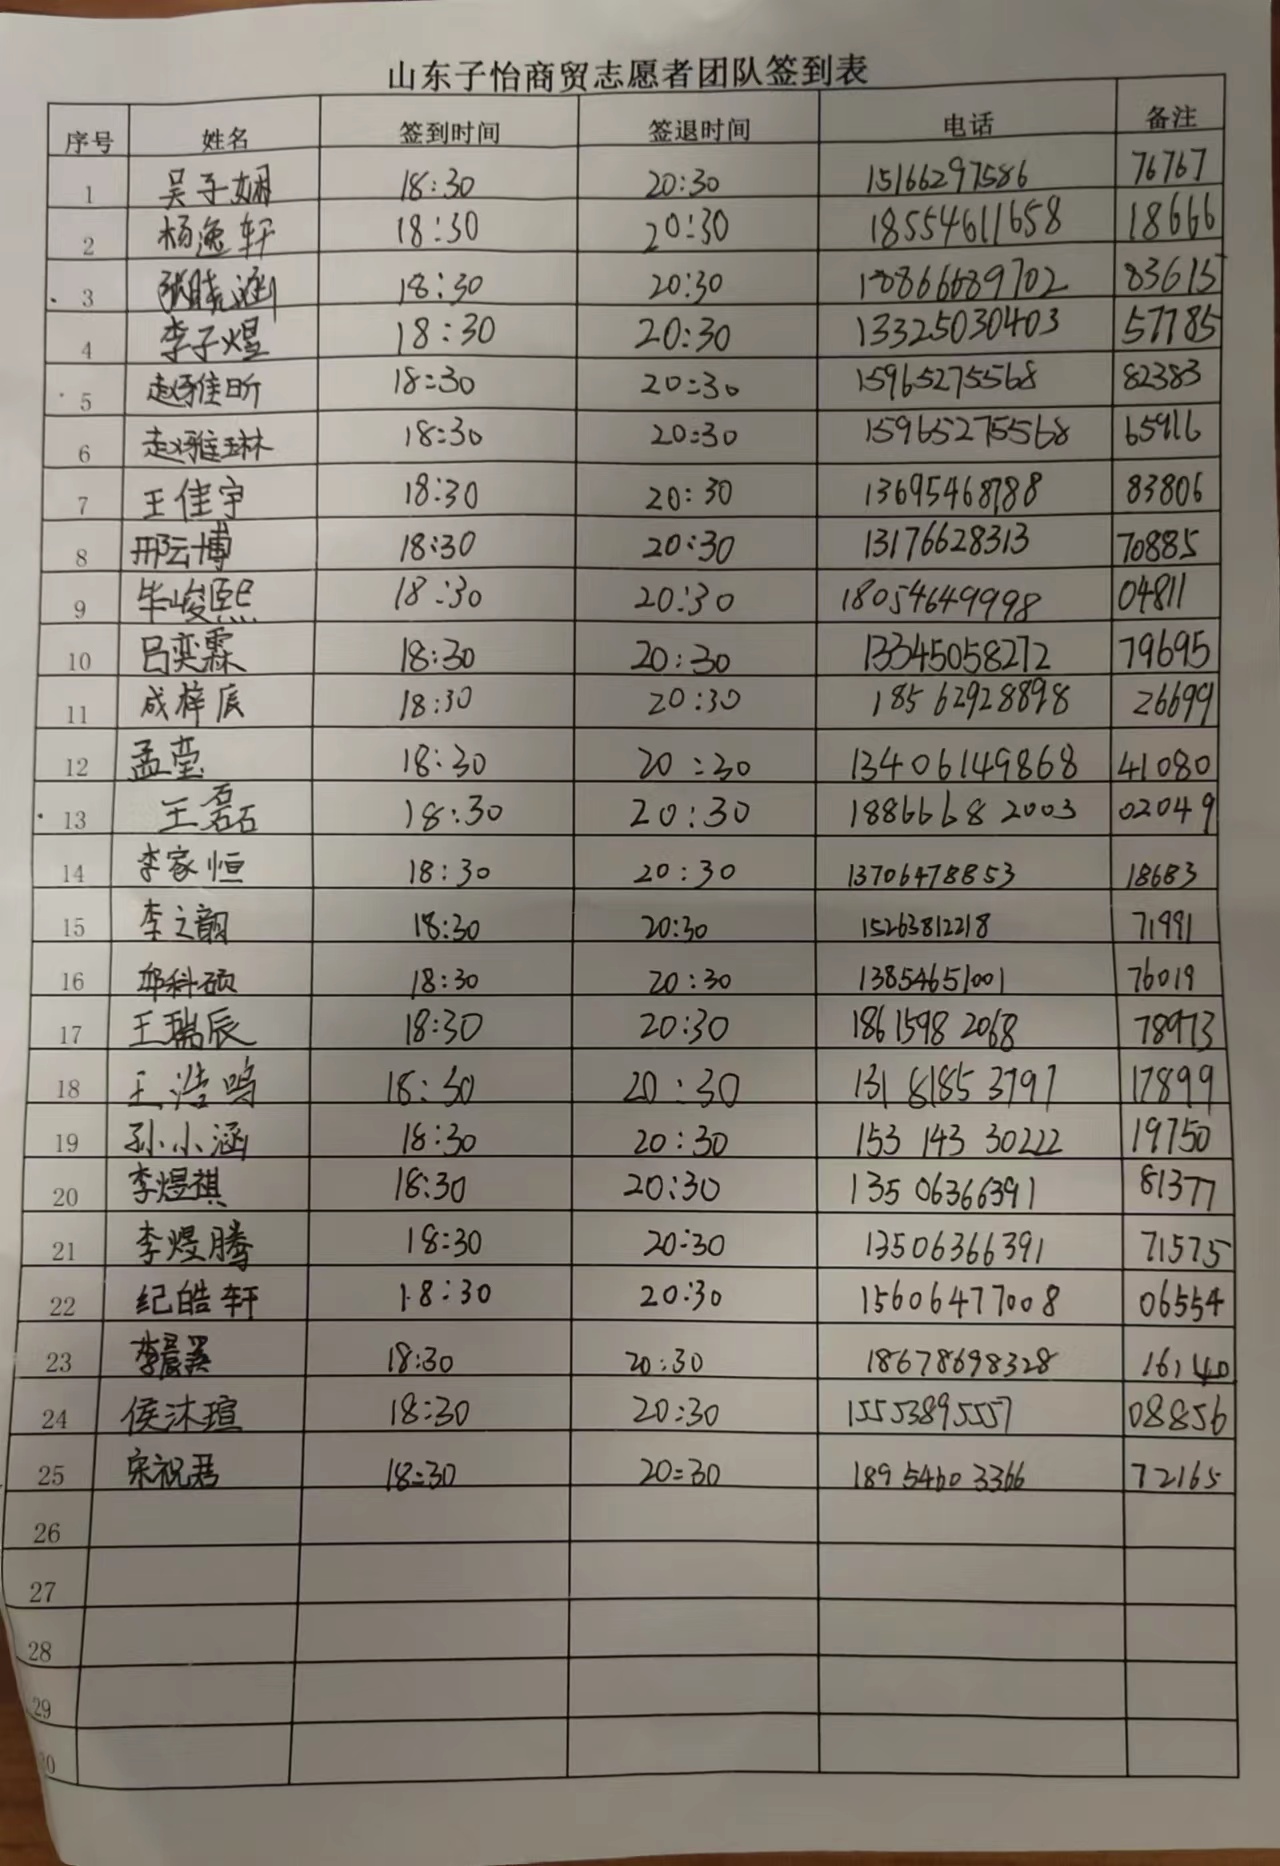 山东子怡商贸志愿者团队签到表
序号 姓名 签到时间 签退时间 电话 备注
1 吴子娴 18:30 20:30 15166297586 76767
2 杨逸轩 18:30 20:30 18554611658 18666
3 张晓涵 18:30 20:30 18866689702 83615
4 李子煜 18:30 20:30 13325030403 57785
5 赵雅昕 18:30 20:30 15965275568 82383
6 赵雅琳 18:30 20:30 15965275568 65916
7 王佳宇 18:30 20:30 13695468788 83806
8 邢云博 18:30 20:30 13176628313 70885
9 毕峻熙 18:30 20:30 18054649998 04811
10 吕奕霖 18:30 20:30 13345058272 79695
11 成梓 18:30 20:30 18562928898 26699
12 孟莹 18:30 20:30 13406149868 41080
13 王磊 18:30 20:30 18866682003 02049
14 李家恒 18:30 20:30 13706478853 18683
15 李之韵 18:30 20:30 15263812218 71991
16 科硕 18:30 20:30 13854651001 76019
17 王瑞辰 18:30 20:30 18615982068 78973
18 王浩鸣 18:30 20:30 13181853797 17899
19 孙小涵 18:30 20:30 153 143 30222 19750
20 李煜祺 18:30 20:30 13506366391 81377
21 李煜腾 18:30 20:30 13506366391 71575
22 纪皓轩 18:30 20:30 15606477008 06554
23 李晨溪 18:30 20:30 18678698328 16140
24 侯沐瑄 18:30 20:30 15553895557 08856
25 宋祝君 18:30 20:30 18954603366 72165
26
27
28
29